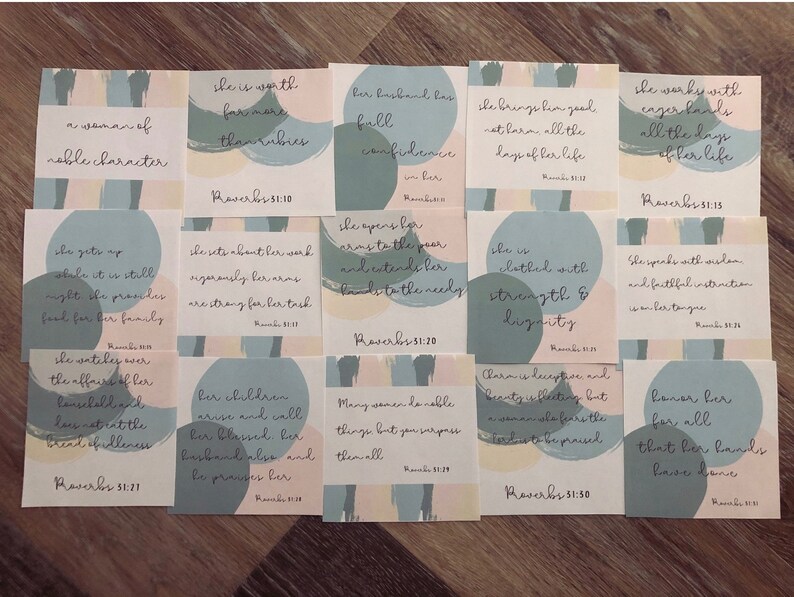 a woman of
noble character
she is worth
far more
than rubies
Proverbs 31:10
her husband has
full
confidence
in her
Proverbs 31:11
she brings him good,
not harm, all the
days of her life
Proverbs 31:12
she works with
eager hands
all the days
of her life
Proverbs 31:13
she gets up
while it is still
night; she provides
food for her family
Proverbs 31:15
she sets about her work
vigorously; her arms
are strong for her task
Proverbs 31:17
she opens her
arms to the poor
and extends her
hands to the needy
Proverbs 31:20
she is
clothed with
strength &
dignity
Proverbs 31:25
She speaks with wisdom,
and faithful instruction
is on her tongue
Proverbs 31:26
she watches over
the affairs of her
household and
does not eat the
bread of idleness
Proverbs 31:27
her children
arise and call
her blessed; her
husband also, and
he praises her
Proverbs 31:28
Many women do noble
things, but you surpass
them all
Proverbs 31:29
Charm is deceptive, and
beauty is fleeting; but
a woman who fears the
Lord is to be praised
Proverbs 31:30
honor her
for all
that her hands
have done
Proverbs 31:31